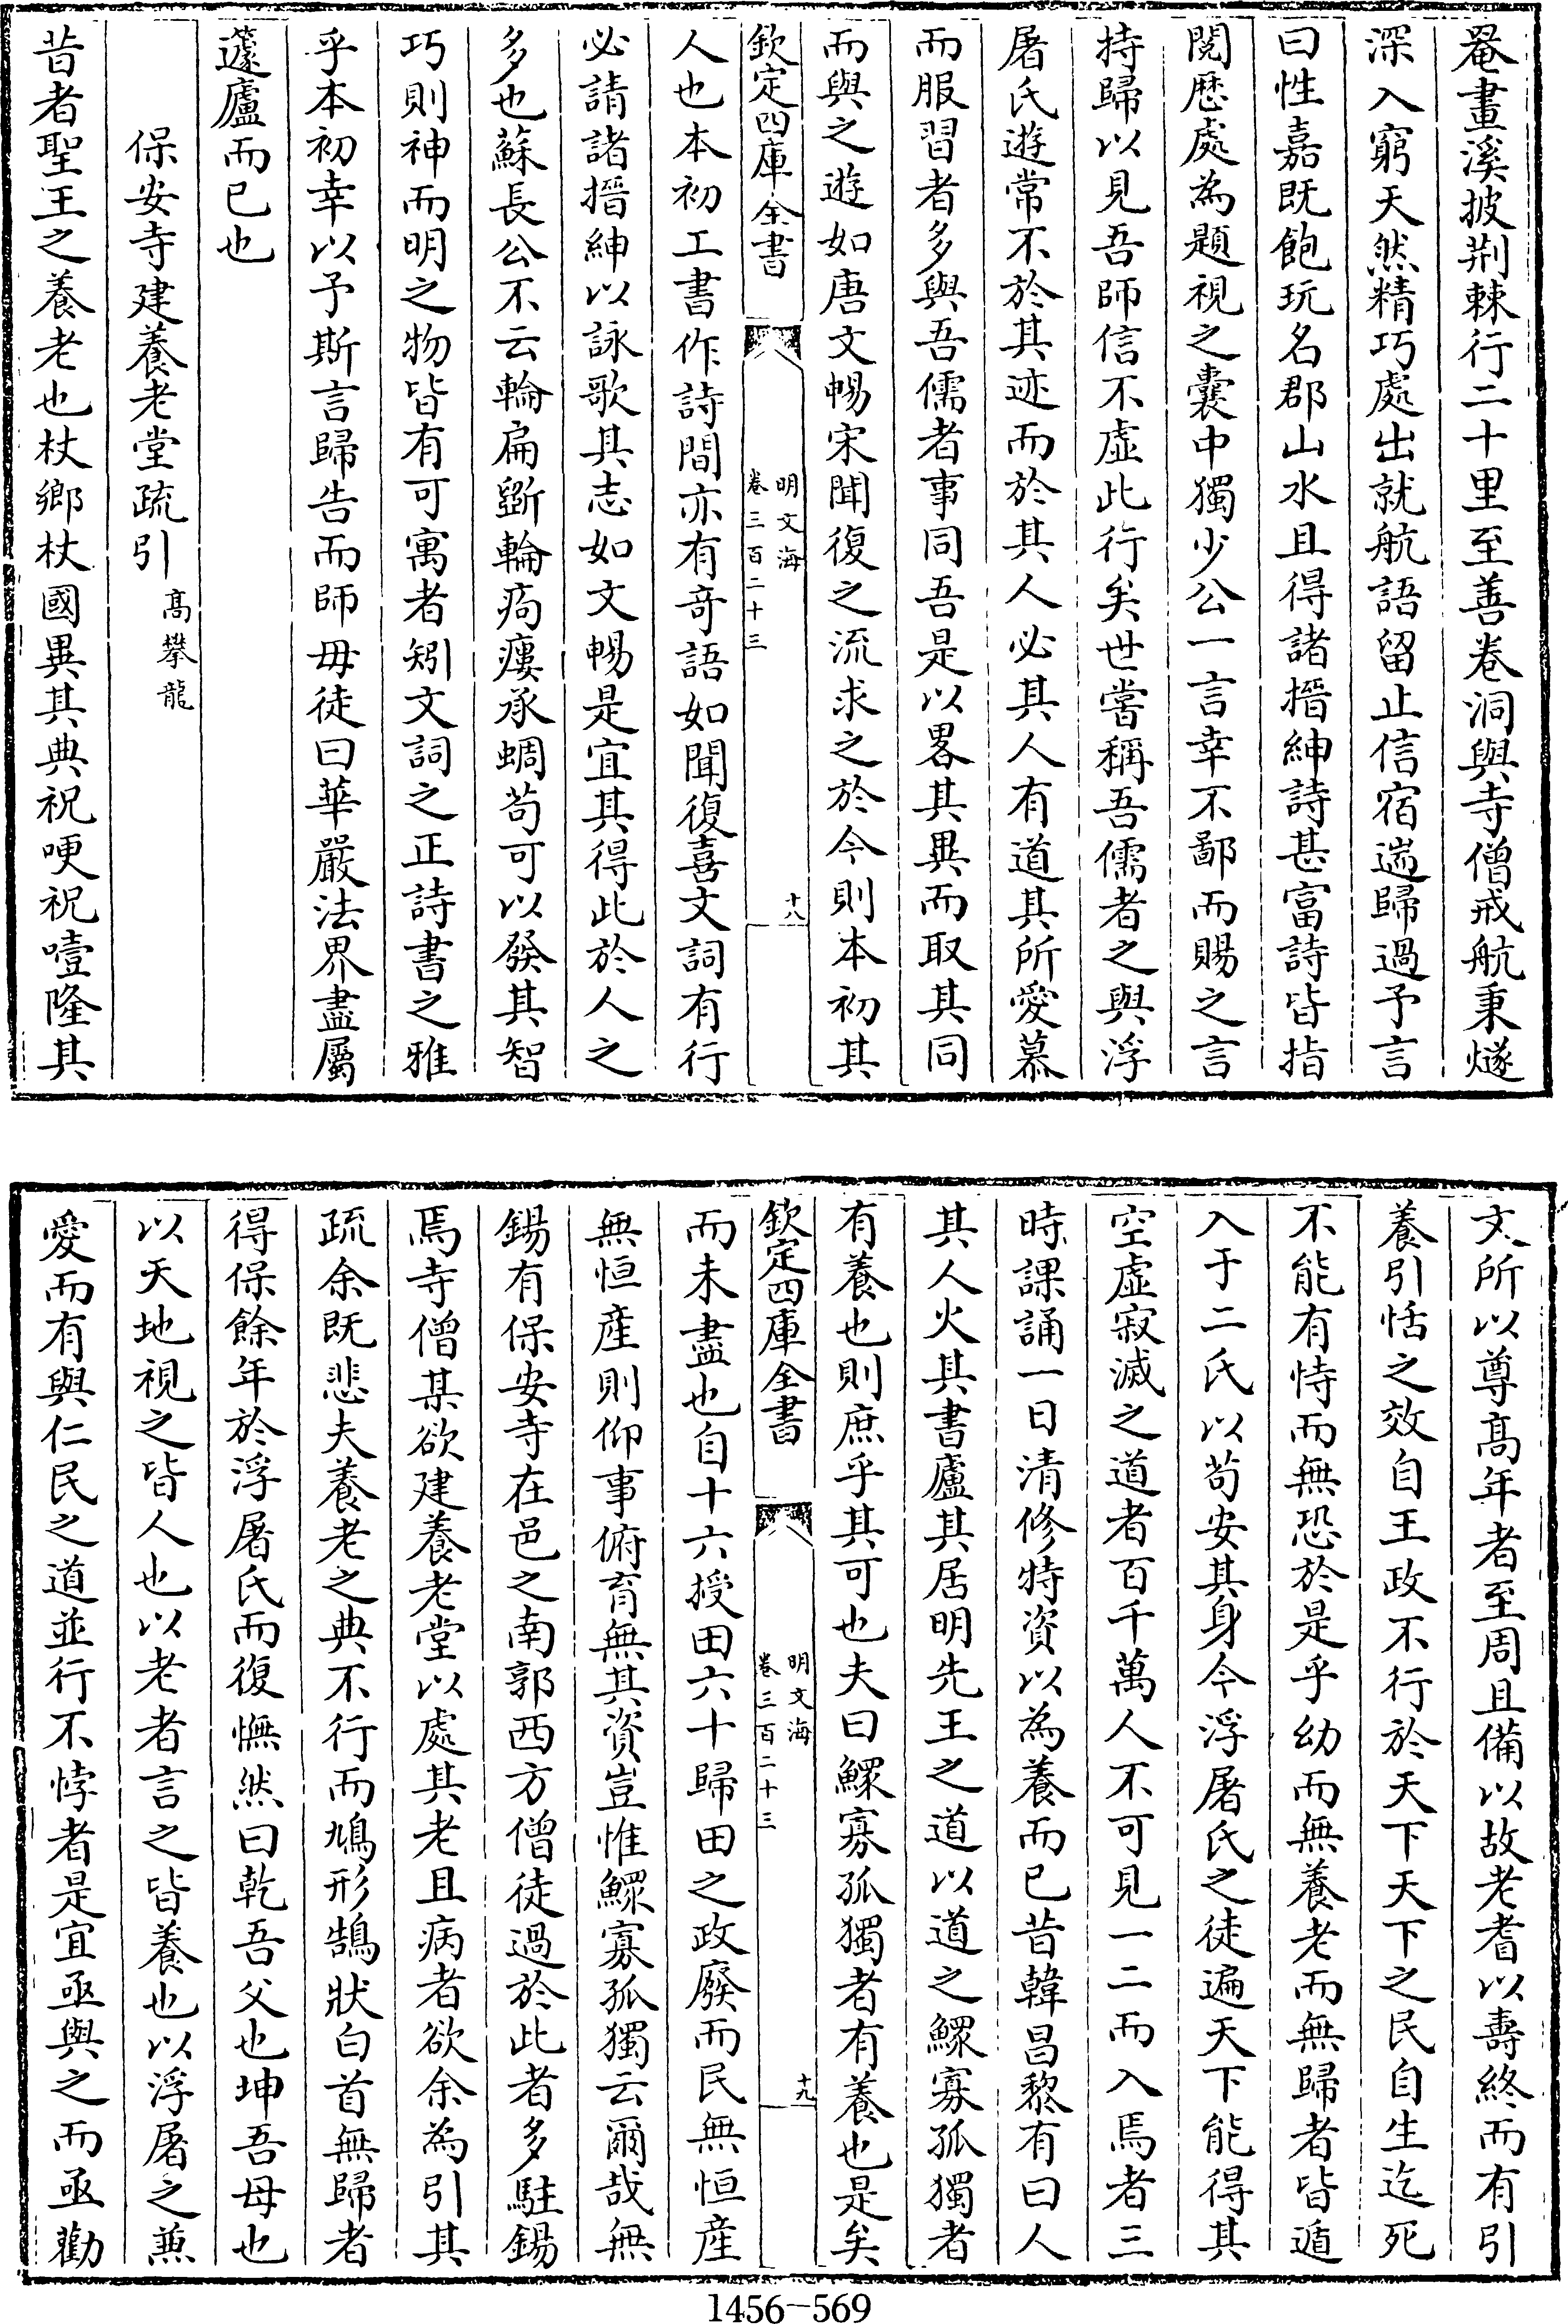 罨畫溪披荆棘行二十里至善卷洞與寺僧戒航秉燧
深入窮天然精巧處出就航語留止信宿遄歸過予言
曰性嘉既飽玩名郡山水且得諸搢紳詩甚富詩皆指
閱歴處為題視之囊中獨少公一言幸不鄙而賜之言
持歸以見吾師信不虛此行矣世嘗稱吾儒者之與浮
屠氏遊常不於其迹而於其人必其人有道其所愛慕
而服習者多與吾儒者事同吾是以畧其異而取其同
而與之遊如唐文暢宋聞復之流求之於今則本初其
欽定四庫全書
明文海
卷三百二十三
十八
人也本初工書作詩間亦有竒語如聞復喜文詞有行
必請諸搢紳以詠歌其志如文暢是宜其得此於人之
多也蘇長公不云輪扁斵輪痀瘻承蜩苟可以發其智
巧則神而明之物皆有可寓者矧文詞之正詩書之雅
乎本初幸以予斯言歸告而師毋徒曰華嚴法界盡屬
蘧廬而已也
保安寺建養老堂疏引
高攀龍
昔者聖王之養老也杖鄉杖國異其典祝哽祝噎隆其
文所以尊髙年者至周且備以故老耆以壽終而有引
養引恬之效自王政不行於天下天下之民自生迄死
不能有恃而無恐於是乎幼而無養老而無歸者皆遁
入于二氏以苟安其身今浮屠氏之徒遍天下能得其
空虛寂滅之道者百千萬人不可見一二而入焉者三
時課誦一日清修特資以為養而已昔韓昌黎有曰人
其人火其書廬其居明先王之道以道之鰥寡孤獨者
有養也則庶乎其可也夫曰鰥寡孤獨者有養也是矣
欽定四庫全書
明文海
卷三百二十三
十九
而未盡也自十六授田六十歸田之政廢而民無恒産
無恒産則仰事俯育無其資豈惟鰥寡孤獨云爾哉無
錫有保安寺在邑之南郭西方僧徒過於此者多駐錫
焉寺僧某欲建養老堂以處其老且病者欲余為引其
疏余既悲夫養老之典不行而鳩形鵠狀白首無歸者
得保餘年於浮屠氏而復憮然曰乾吾父也坤吾母也
以天地視之皆人也以老者言之皆養也以浮屠之兼
愛而有與仁民之道並行不悖者是宜亟與之而亟勸
1456—569